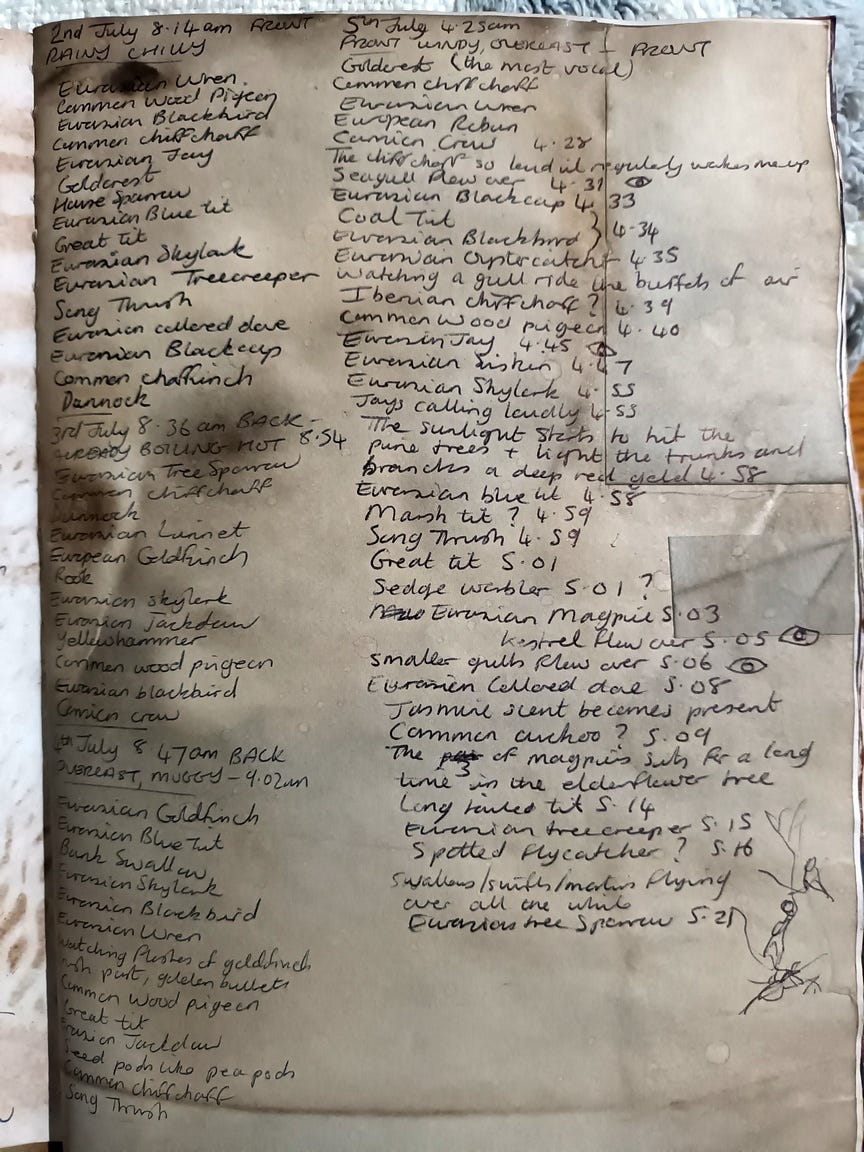 2nd July 8.14am FRONT
RAINY CHILLY
Eurasian Wren
Common Wood Pigeon
Eurasian Blackbird
Common chiffchaff
Eurasian Jay
Goldcrest
House Sparrow
Eurasian Blue tit
Great tit
Eurasian Skylark
Eurasian Treecreeper
Song Thrush
Eurasian collared dove
Eurasian Blackcap
Common chaffinch
Dunnock
3rd July 8.36am BACK -
ALREADY BOILING HOT 8.54
Eurasian Tree Sparrow
Common chiffchaff
Dunnock
Eurasian Linnet
European Goldfinch
Rook
Eurasian skylark
Eurasian jackdaw
Yellowhammer
Common wood pigeon
Eurasian blackbird
Carrion crow
4th July 8 47am BACK
OVERCAST, MUGGY - 9.02am
Eurasian Goldfinch
Eurasian Blue Tit
Bank Swallow
Eurasian Skylark
Eurasian Blackbird
Eurasian Wren
Watching flashes of goldfinch
rush past, golden bullets
Common Wood pigeon
Great tit
Eurasian Jackdaw
Seed pods like pea pods
Common chiffchaff
Song Thrush
5th July 4.23am
FRONT WINDY, OVERCAST - FRONT
Goldcrest (the most vocal)
Common chiffchaff
Eurasian Wren
European Robin
Carrion Crow 4.28
The chiffchaff so loud it regularly wakes me up
Seagull flew over 4.31
Eurasian Blackcap 4.33
Coal Tit
Eurasian Blackbird } 4.34
Eurasian Oystercatch 4.35
Watching a gull ride the buffets of air
Iberian chiffchaff? 4.39
Common Wood pigeon 4.40
Eurasian Jay 4.45
Eurasian Siskin 4.47
Eurasian Skylark 4.55
Jays calling loudly 4.55
The sunlight starts to hit the
pine trees + light the trunks and
branches a deep red gold 4.58
Eurasian blue tit 4.58
Marsh tit? 4.59
Song Thrush 4.59
Great tit 5.01
Sedge warbler 5.01?
Eurasian Magpie 5.03
Kestrel flew over 5.05
Smaller gulls flew over 5.06
Eurasian Collared dove 5.08
Jasmine scent becomes present
Common cuckoo? 5.09
The 3 of magpies sits for a long
time in the elderflower tree
Long tailed tit 5.14
Eurasian treecreeper 5.15
Spotted Flycatcher? 5.16
Swallows/swifts/martins flying
over all the while
Eurasian tree Sparrow 5.21